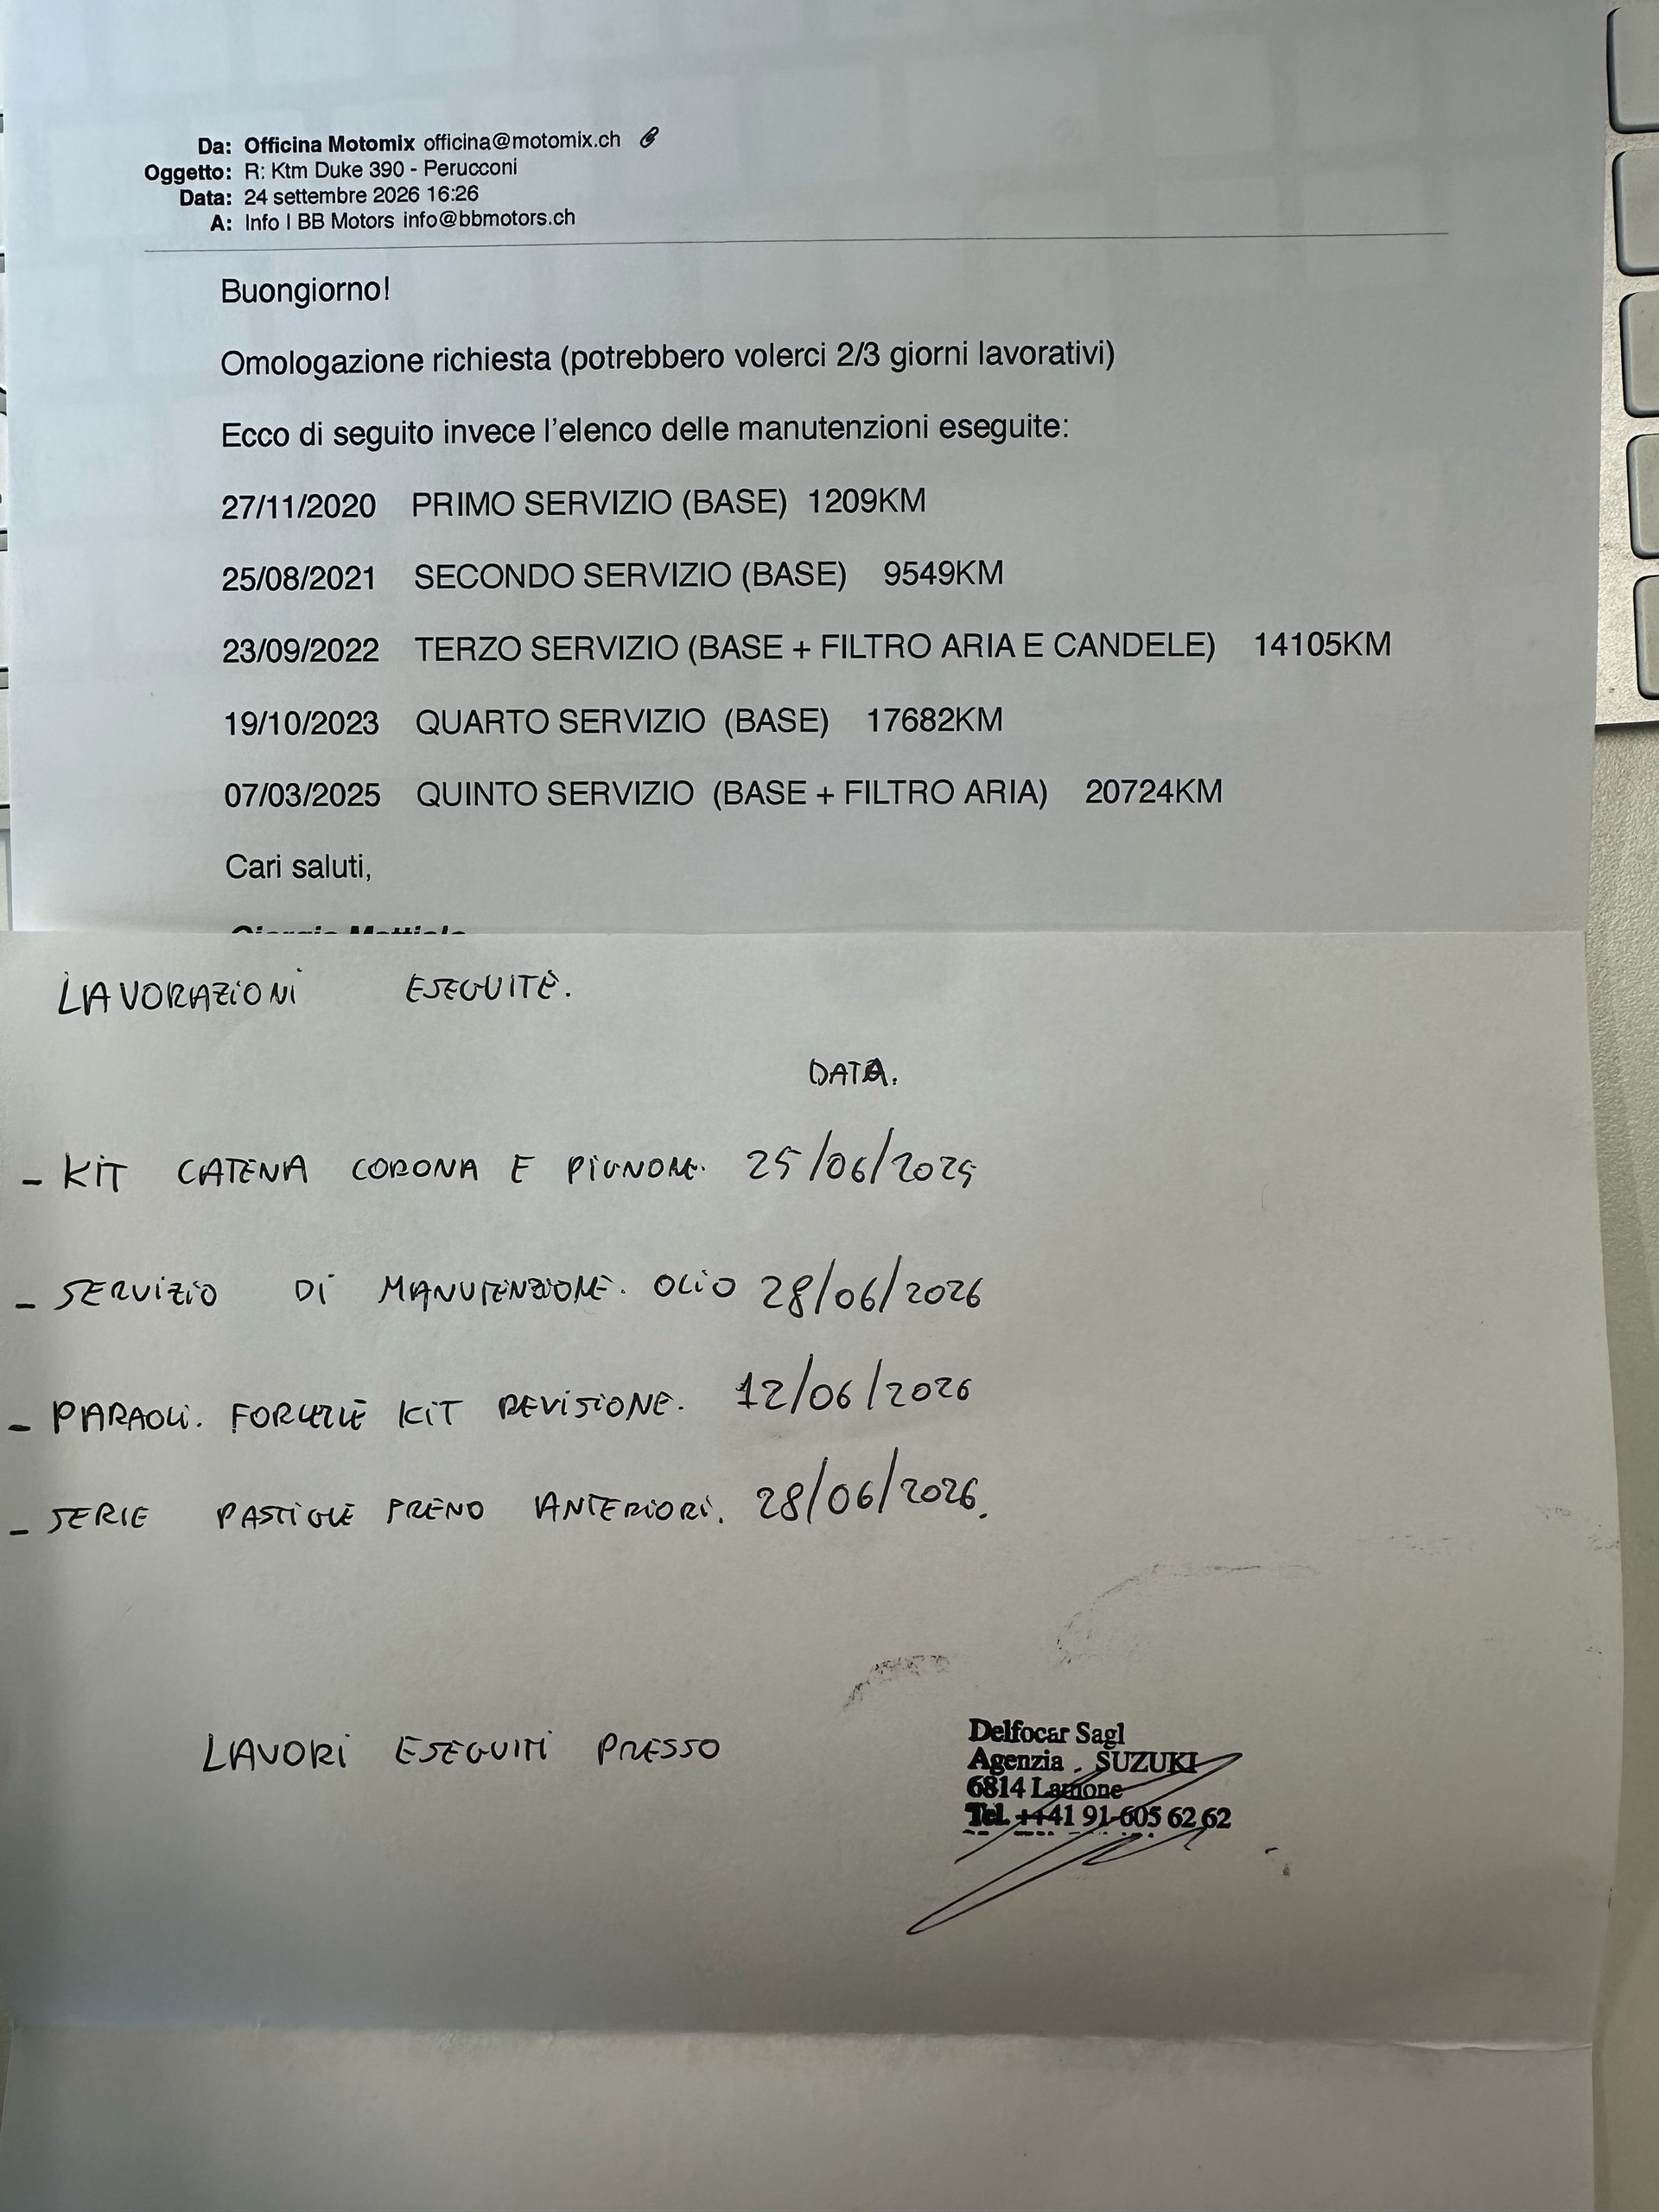 Da: Officina Motomix officina@motomix.ch
Oggetto: R: Ktm Duke 390 - Perucconi
Data: 24 settembre 2026 16:26
A: Info | BB Motors info@bbmotors.ch
Buongiorno!
Omologazione richiesta (potrebbero volerci 2/3 giorni lavorativi)
Ecco di seguito invece l'elenco delle manutenzioni eseguite:
27/11/2020 PRIMO SERVIZIO (BASE) 1209KM
25/08/2021 SECONDO SERVIZIO (BASE) 9549KM
23/09/2022 TERZO SERVIZIO (BASE + FILTRO ARIA E CANDELE) 14105KM
19/10/2023 QUARTO SERVIZIO (BASE) 17682KM
07/03/2025 QUINTO SERVIZIO (BASE + FILTRO ARIA) 20724KM
Cari saluti,
LAVORAZIONI ESEGUITE.
DATA.
- KIT CATENA CORONA E PIGNONE. 25/06/2025
- SERVIZIO DI MANUTENZIONE. OLIO 28/06/2026
- PARAOLI. FORCELLE KIT REVISIONE. 12/06/2026
- SERIE PASTIGLIE FRENO ANTERIORI. 28/06/2026.
LAVORI ESEGUITI PRESSO
Delfocar Sagl
Agenzia . SUZUKI
6814 Lamone
Tel. ++41 91-605 62 62